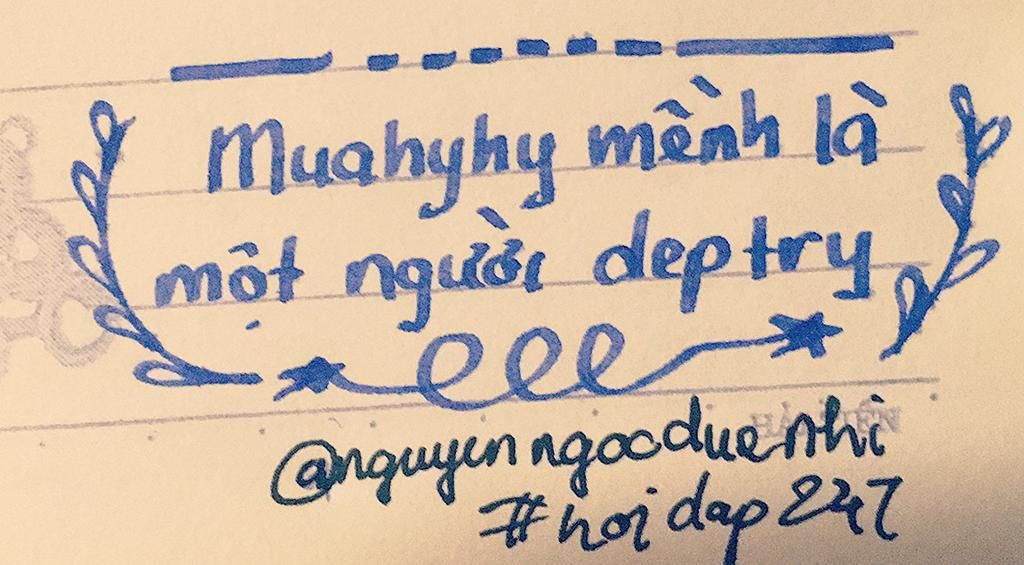 Muahyhy mềnh là
một người deptry
@nguyenngocduenhi
#hoidap247